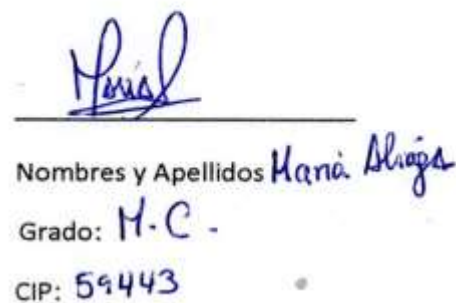 Nombres y Apellidos María Aliaga
Grado: M.C.
CIP: 59443